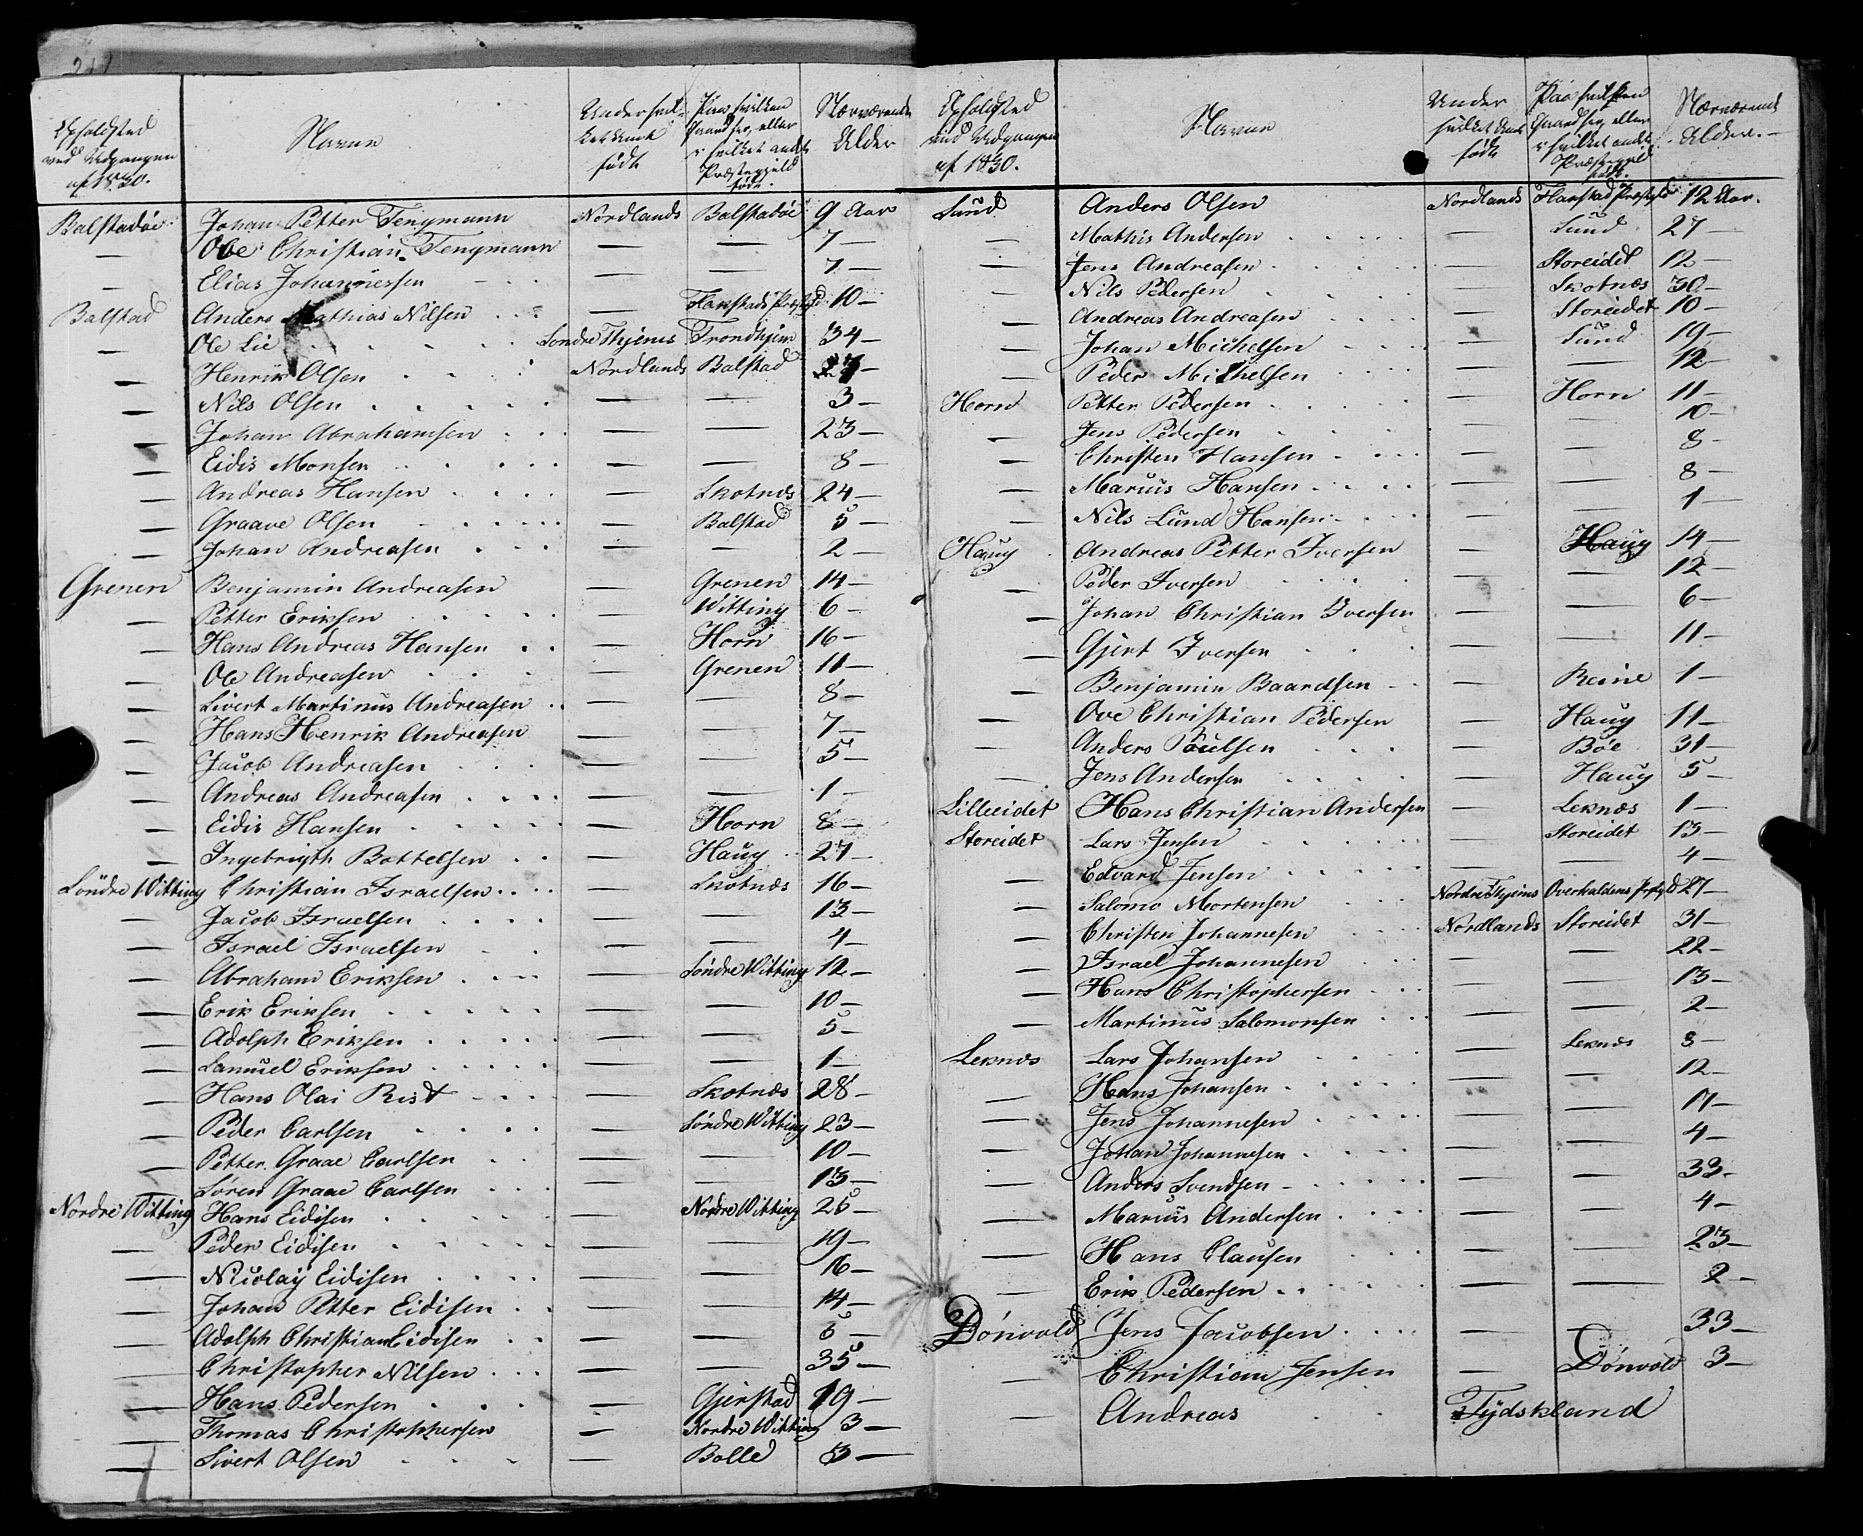 Opholdsted ved Udgangen af 1830.
Navne
Under hvilket Amt født
Paa hvilken Gaard sey eller i hvilket andet Præstegjeld født.
Nærværende Alder
Balstadøe Johan Petter Tengmann Nordlands Balstadøe 9 Aar
— Ole Christian Tengmann — — 7 —
— Elias Johannessen — — 7 —
Balstad Anders Mathias Nilsen — Flakstads Præstegd 10 —
— Ole Lie Søndre Thjems Trondhjem 34 —
— Henrik Olsen Nordlands Balstad 27 —
— Nils Olsen — — 3 —
— Johan Abrahamsen — — 23 —
— Eidis Monsen — — 8 —
— Andreas Hansen — Skotnæs 24 —
— Graave Olsen — Balstad 5 —
— Johan Andreasen — — 2 —
Grenen Benjamin Andreasen — Grenen 14 —
— Petter Eriksen — Witting 6 —
— Hans Andreas Hansen — Horn 16 —
— Ole Andreasen — Grenen 11 —
— Sivert Martinus Andreasen — — 8 —
— Hans Henrik Andreasen — — 7 —
— Jacob Andreasen — — 5 —
— Andreas Andreasen — — 1 —
— Eidis Hansen — Horn 8 —
— Ingebrigth Bottelsen — Haug 27 —
Søndre Witting Christian Israelsen — Skotnæs 16 —
— Jacob Israelsen — — 13 —
— Israel Israelsen — — 4 —
— Abraham Eriksen — Søndre Witting 12 —
— Erik Eriksen — — 10 —
— Adolph Eriksen — — 5 —
— Samuel Eriksen — — 1 —
— Hans Olai Rist — Skotnæs 28 —
— Peder Carlsen — Søndre Witting 23 —
— Petter Graae Carlsen — — 10 —
— Søren Graae Carlsen — — 13 —
Nordre Witting Hans Eidisen — Nordre Witting 25 —
— Peder Eidisen — — 19 —
— Nicolay Eidisen — — 16 —
— Johan Petter Eidisen — — 14 —
— Adolph Christian Eidisen — — 5 —
— Christopher Nilsen — — 35 —
— Hans Pedersen — Gjerstad 19 —
— Thomas Christophersen — Nordre Witting 3 —
— Sivert Olsen — Bolle 3 —
Opholdsted ved Udgangen af 1830.
Navne
Under hvilket Amt født
Paa hvilken Gaard sey eller i hvilket andet Præstegield født.
Nærværende Alder. —
Lund Anders Olsen Nordlands Flakstad Præstegd 12 Aar.
— Mathis Andersen — Lund 27 —
— Jens Andreasen — Storeidet 12 —
— Nils Pedersen — Skotnæs 30 —
— Andreas Andreasen — Storeidet 10 —
— Johan Michelsen — Lund 19 —
— Peder Michelsen — — 12 —
Horn Petter Pedersen — Horn 11 —
— Jens Pedersen — — 10 —
— Christen Hansen — — 8 —
— Marius Hansen — — 8 —
— Nils Lund Hansen — — 1 —
Haug Andreas Petter Iversen — Haug 14 —
— Peder Iversen — — 12 —
— Johan Christian Iversen — — 6 —
— Gjert Iversen — — 11 —
— Benjamin Baardsen — Reine 1 —
— Ove Christian Pedersen — Haug 11 —
— Anders Poulsen — Bøe 31 —
— Jens Andersen — Haug 5 —
Lilleeidet Hans Christian Andersen — Leknæs 1 —
Storeidet Lars Jensen — Storeidet 13 —
— Edvard Jensen — — 4 —
— Salomo Mortensen Nordre Thjems Overhaldens 27 —
— Christen Johannesen Nordlands Storeidet 31 —
— Israel Johannesen — — 22 —
— Hans Christophersen — — 13 —
— Martinus Salomonsen — — 2 —
Leknæs Lars Johansen — Leknæs 8 —
— Hans Johansen — — 12 —
— Jens Johannesen — — 11 —
— Johan Johannesen — — 4 —
— Anders Svendsen — — 33 —
— Marius Andersen — — 4 —
— Hans Clausen — — 23 —
— Erik Pedersen — — 2 —
Dønvold Jens Jacobsen — — 33 —
— Christian Jensen — Dønvold 3 —
— Andreas Tydskland